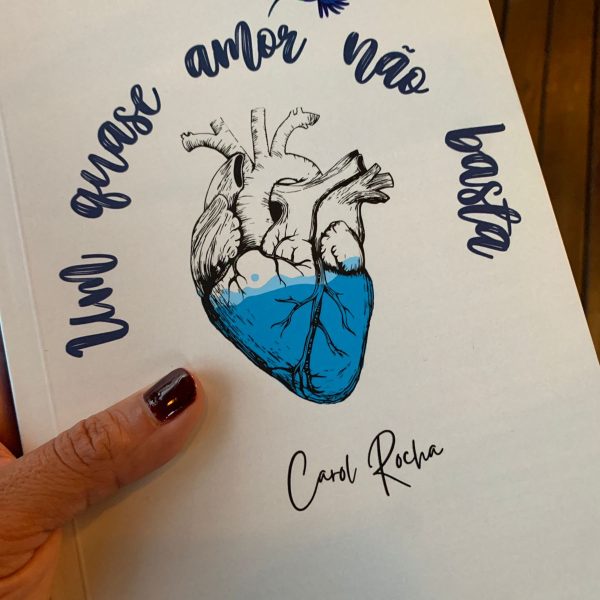 Um quase amor não basta
Carol Rocha